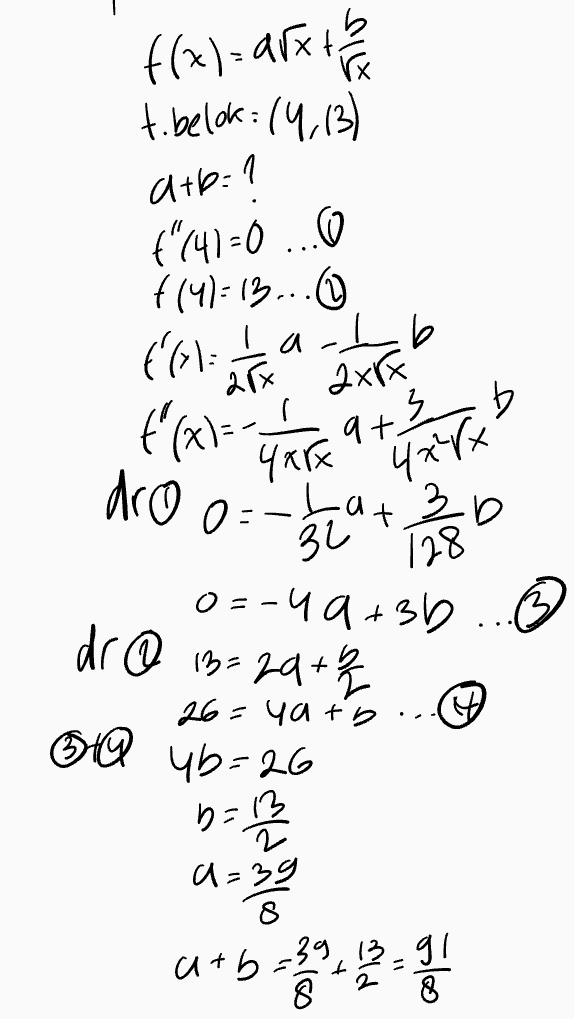 f(x) = a√x + b/√x
t. belok : (4, 13)
a+b = ?
f''(4) = 0 ... ①
f(4) = 13 ... ②
f'(x) = 1/(2√x) a - 1/(2x√x) b
f''(x) = - 1/(4x√x) a + 3/(4x²√x) b
dr ① 0 = - 1/32 a + 3/128 b
0 = -4a + 3b ... ③
dr ② 13 = 2a + b/2
26 = 4a + b ... ④
③+④ 4b = 26
b = 13/2
a = 39/8
a + b = 39/8 + 13/2 = 91/8